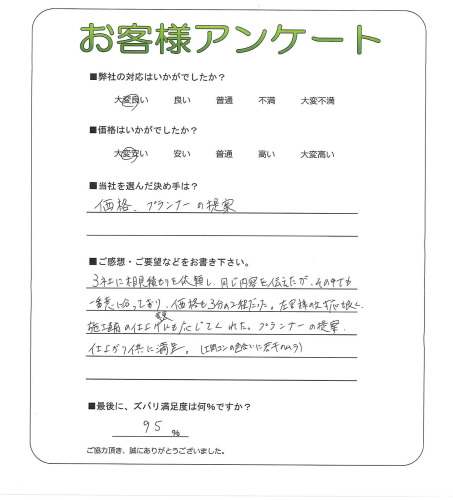 お客様アンケート
■弊社の対応はいかがでしたか？
大変良い 良い 普通 不満 大変不満
■価格はいかがでしたか？
大変安い 安い 普通 高い 大変高い
■当社を選んだ決め手は？
価格、プランナーの提案
■ご感想・ご要望などをお書き下さい。
3社に相見積もりを依頼し、同じ内容を伝えたが、その中でも
一番 なっており、価格も3分の2程だった。 対応も良く、
施工 の仕上げ にも応じてくれた。プランナーの提案、
仕上がり共に満足。(土間コンの色合いに若干のムラ)
■最後に、ズバリ満足度は何%ですか？
95 %
ご協力頂き、誠にありがとうございました。